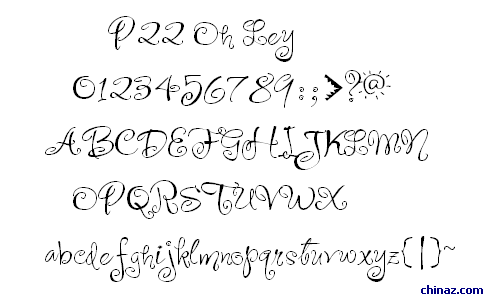 P22 Oh Ley
0123456789:;>?@
ABCDEFGHIJKLMN
OPQRSTUVWX
abcdefghijklmnopqrstuvwxyz{|}~
chinaz.com